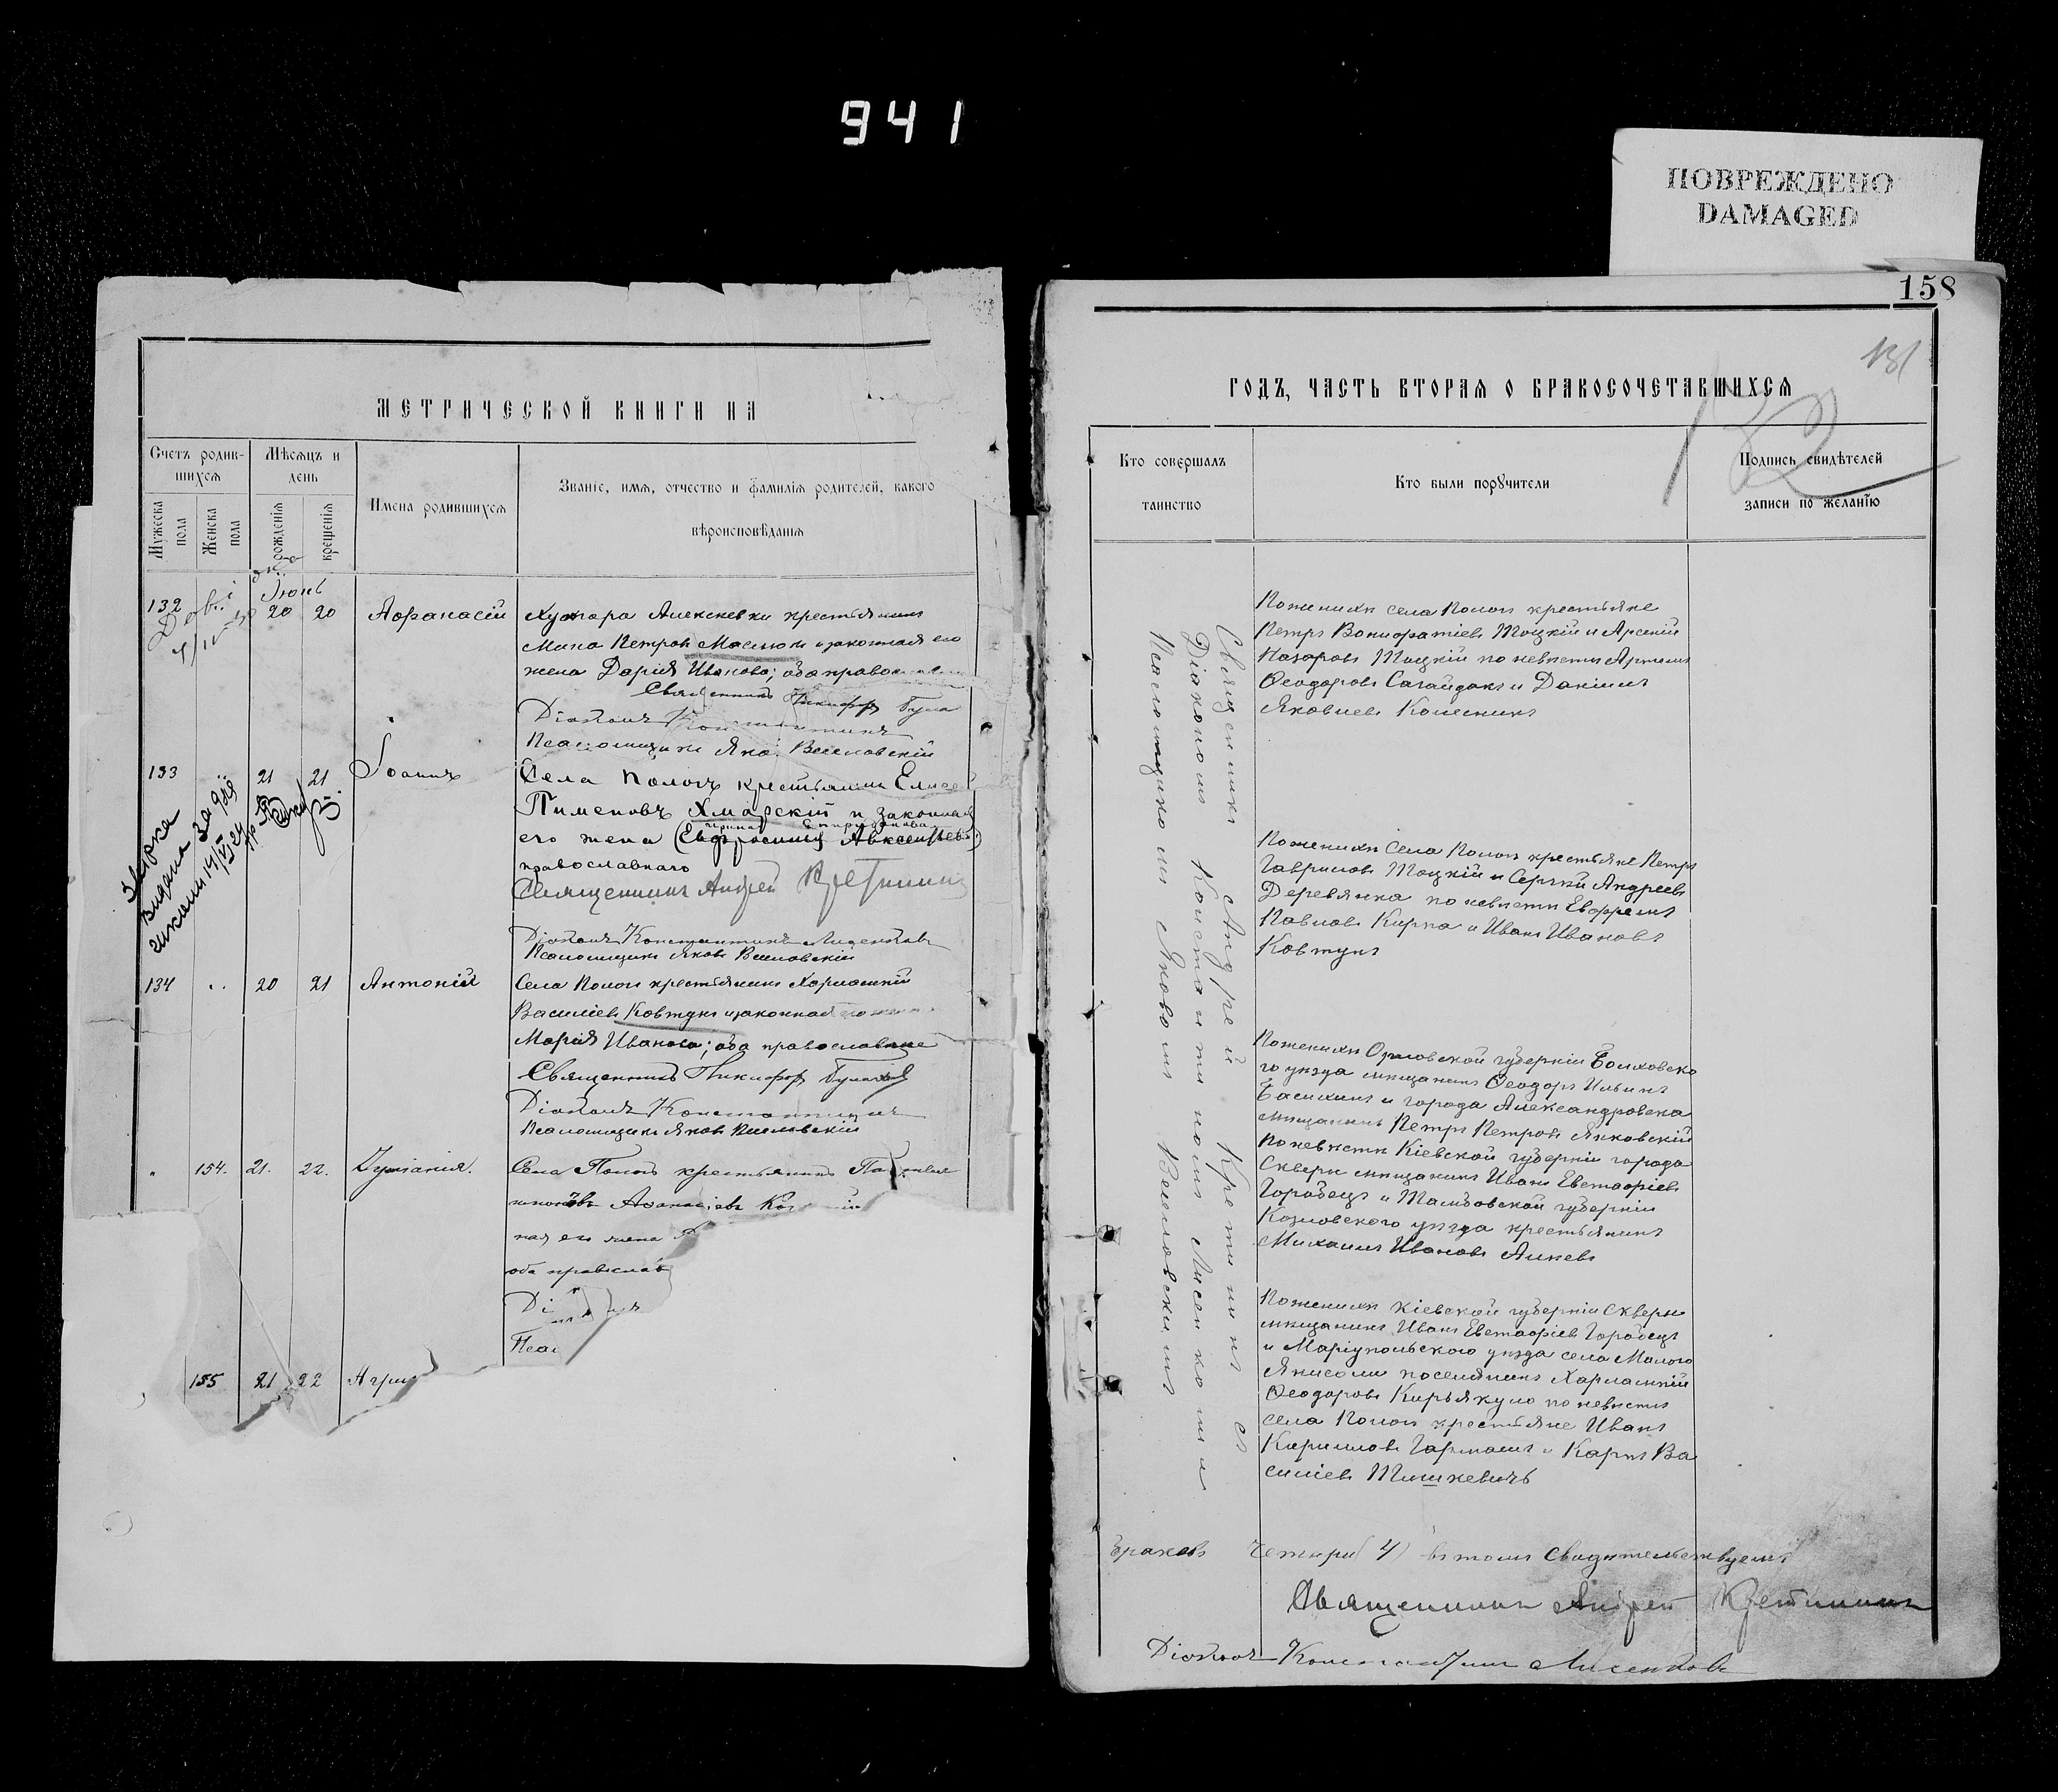 941
ПОВРЕЖДЕНО
DAMAGED
МЕТРИЧЕСКОЙ КНИГИ НА
Счетъ родив-
шихся
Мѣсяцъ и
день
Имена родившихся
Званіе, имя, отчество и фамилія родителей, какого
вѣроисповѣданія
Мужеска
пола
Женска
пола
рожденія
крещенія
Іюнь
132
20
20
Афанасій
Хутора Алексеевки крестьянинъ
Мина Петровъ Масюкъ и законная его
жена Дарія Иванова; оба
Священникъ Никифор
Діаконъ
Псаломщикъ Веселовскій
133
21
21
Іоаннъ
Села Пологъ крестьянинъ
Пименовъ Хмарскій и законная
его жена (Евфросинія Авксентьева)
православнаго
Священникъ Андрей Кретининъ
Діаконъ Константинъ Лисенковъ
Псаломщикъ Яковъ Веселовскій
134
20
21
Антоній
Села Пологъ крестьянинъ Харлампій
Василіевъ Ковтунъ и законная
Марія Иванова; оба православные
Священникъ Никифор
Діаконъ Константинъ
Псаломщикъ Яковъ Веселовскій
154.
21.
22.
Села Пологъ крестьянинъ
Афанасіевъ
ная его жена
оба православ
Ді
Псал
155
21
22
Агри
158
131
132
ГОДЪ, ЧАСТЬ ВТОРАЯ О БРАКОСОЧЕТАВШИХСЯ
Кто совершалъ
таинство
Кто были поручители
Подпись свидѣтелей
записи по желанію
Священникъ Андрей Кретининъ съ
Діакономъ Константиномъ Лисенкомъ и
Псаломщикомъ Яковомъ Веселовскимъ
По женихѣ села Пологъ крестьяне
Петръ Вонифатіевъ Тоцкій и Арсеній
Назаровъ Тоцкій по невѣстѣ Артемъ
Ѳеодоровъ Сагайдакъ и Даніилъ
Яковлевъ Колесникъ
По женихѣ села Пологъ крестьяне Петръ
Гавриловъ Тоцкій и Сергѣй Андреевъ
Деревянка по невѣстѣ Евфремъ
Павловъ Кирпа и Иванъ Ивановъ
Ковтунъ
По женихѣ Орловской губерніи Болховско
го уѣзда мѣщанинъ Ѳеодоръ Ильинъ
и города Александровска
мѣщанинъ Петръ Петровъ Янковскій
по невѣстѣ Кіевской губерніи города
Сквери мѣщанинъ Иванъ Евстафіевъ
Горобецъ и Тамбовской губерніи
Козловскаго уѣзда крестьянинъ
Михаилъ Ивановъ
По женихѣ Кіевской губерніи Сквери
мѣщанинъ Иванъ Евстафіевъ Горобецъ
и Маріупольскаго уѣзда села Малаго
Янисоли поселянинъ Харлампій
Ѳеодоровъ Кирьякуло по невѣстѣ
села Пологъ крестьяне Иванъ
Кирилловъ Гармашъ и Карпъ Ва
силіевъ Тишкевичъ
Браковъ четыре (4) въ томъ свидѣтельствуемъ
Священникъ Андрей Кретининъ
Діаконъ Константинъ Лисенковъ